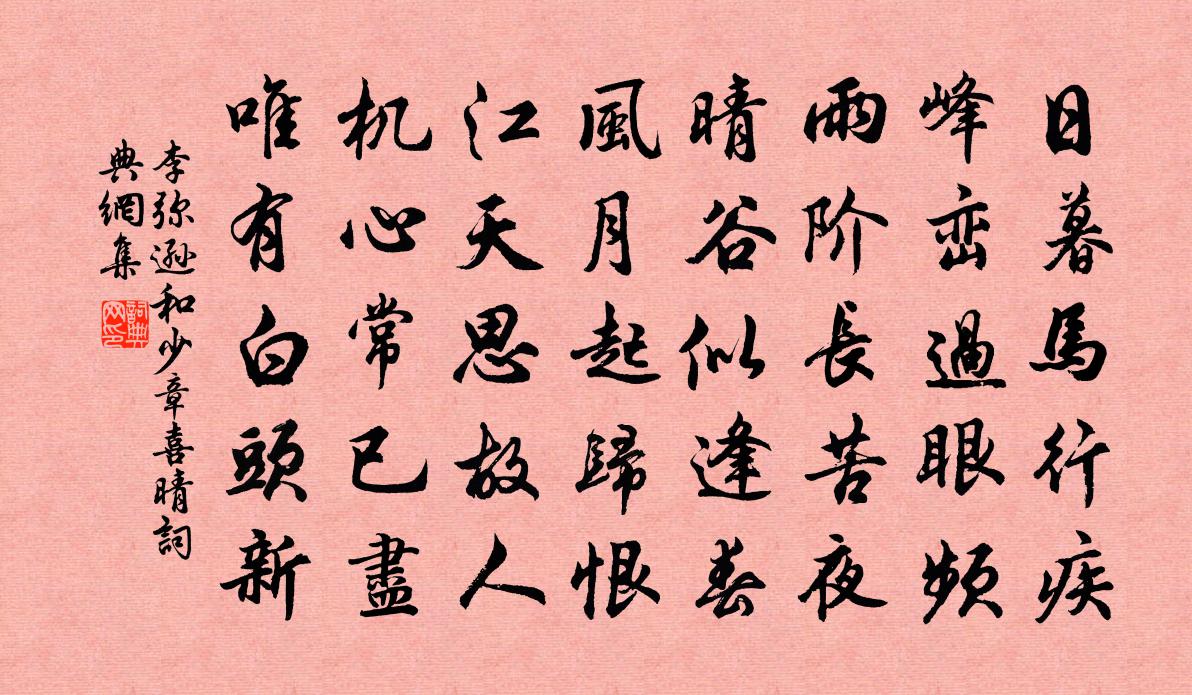 日暮馬行疾
峰巒過眼頻
雨阶長苦夜
晴谷似逢春
風月起歸恨
江天思故人
机心常已盡
唯有白頭新
李弥遜和少章喜晴詞
典網集
詞典网印